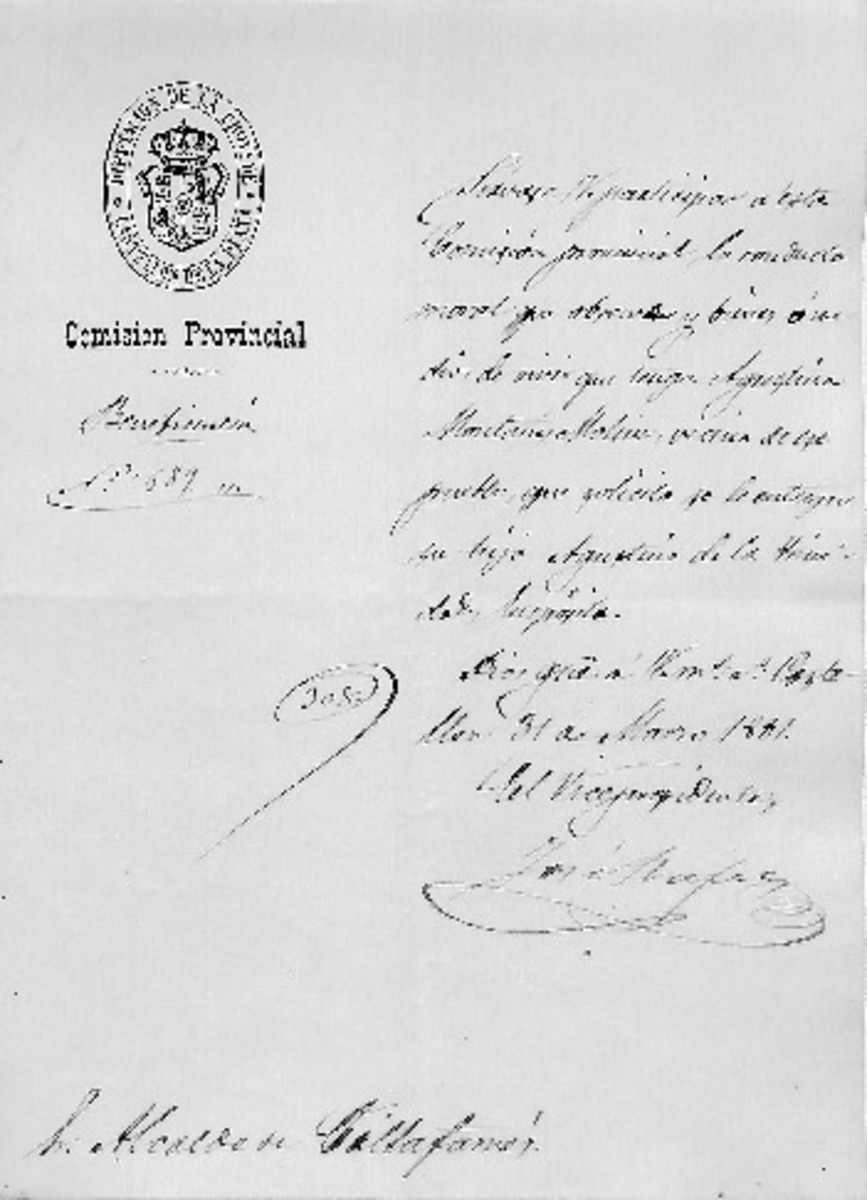 DIPUTACION DE LA PROV. DE
CASTELLON DE LA PLANA
Comision Provincial
Beneficencia
N.º 689
Sírvase V. participar a esta
Comisión provincial la conducta
moral que observa y bienes ó me-
dios de vivir que tenga Agustina
Montañes Molina, vecina de ese
pueblo, que solicita se le entregue
su hijo Agustin de la
Expósito.
Dios gûe á V. m.s a.s Caste-
llon 31 de Marzo 1881.
El Vicepresidente,
José
Sr. Alcalde de Villafamés.